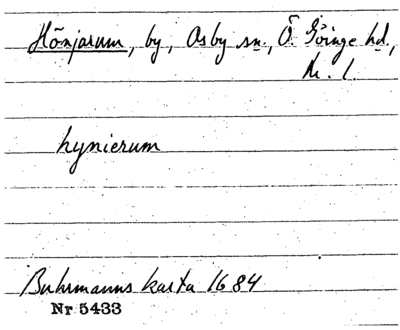 Hönjarum, by, Osby sn., Ö. Göinge hd.,
Kr. l.
hynierum
Buhrmanns karta 1684
Nr 5433